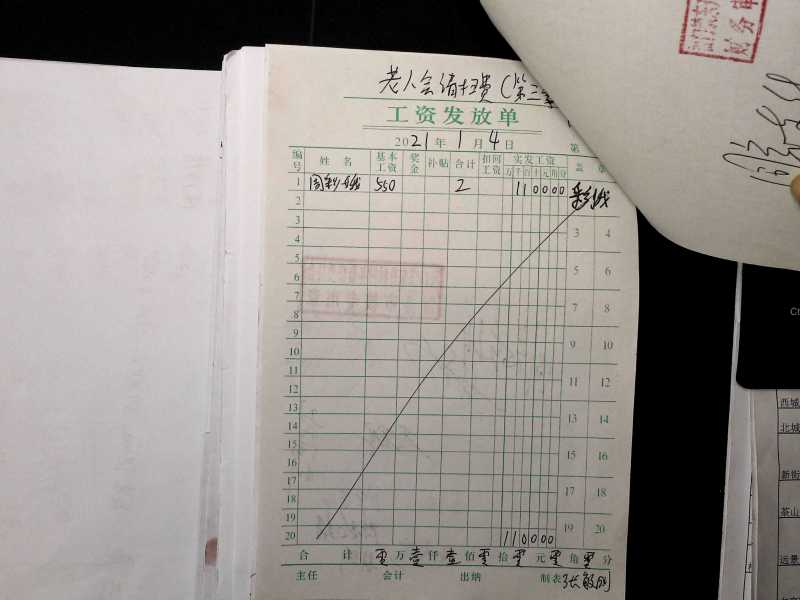 老人会清扫费(第三
工资发放单
2021年1月4日 第
编号 姓名 基本工资 奖金 补贴 合计 扣回工资 实发工资 盖章
万 千 百 十 元 角 分
1 周彩娥 550 2 110000 彩娥
2
3 3 4
4
5 5 6
6
7 7 8
8
9 9 10
10
11 11 12
12
13 13 14
14
15 15 16
16
17 17 18
18
19 19 20
20 110000
合计 零万壹仟壹佰零拾零元零角零分
主任 会计 出纳 制表 张敏
财务审
西城
北城
新街
茶山
远景